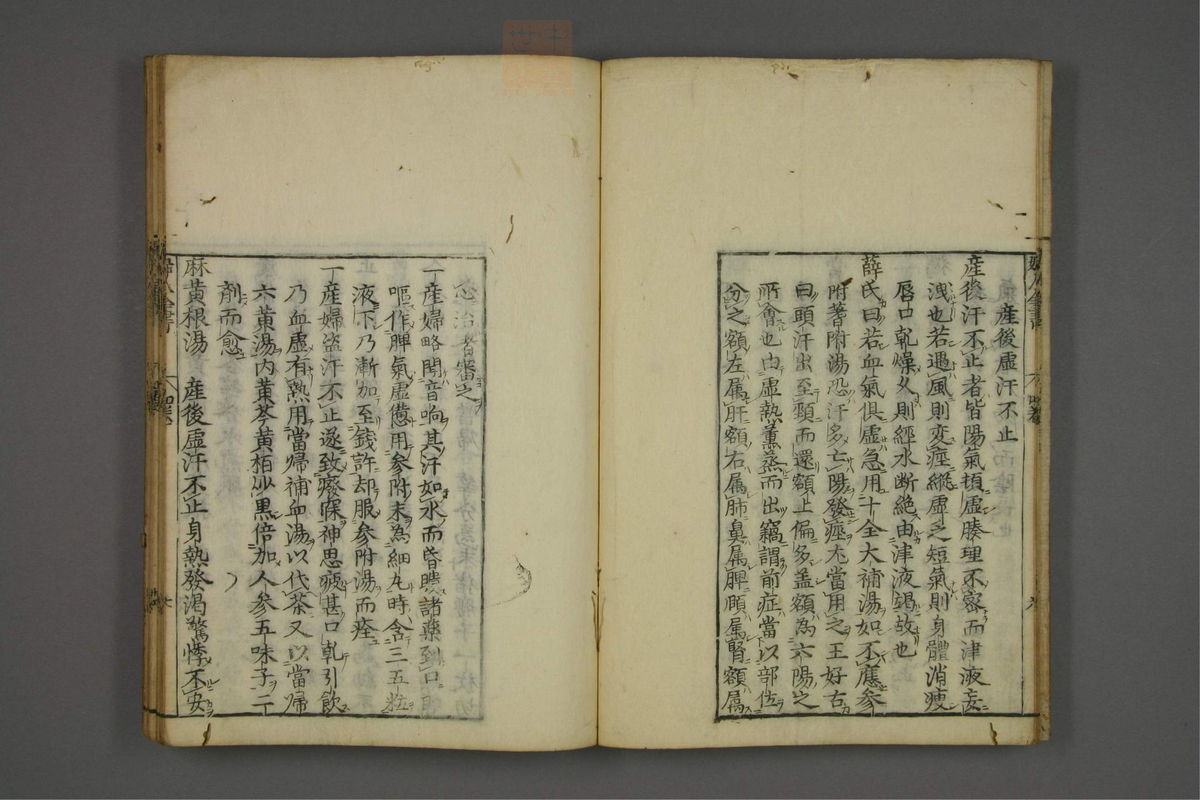 産後虚汗不止
産後汗不止者皆陽氣頓虚腠理不密而津液妄
洩也若遇風則変痙縦虚乏短氣則身體消痩
唇口乾燥久則經水断絶由津液竭故也
薛氏曰若血氣俱虚急用十全大補湯如不應參
附蓍附湯恐汗多亡陽發痙尤當用之王好古
曰頭汗出至頸而還額上偏多盖額為六陽之
所會也由虚熱薫蒸而出竊謂前症當以部位
分之額左属肝額右属肺鼻属脾頤属腎額属
心治者審之
一産婦略聞音响其汗如水而昏愦諸藥到口
嘔作脾氣虚憊用參附末為細丸時含三五粒
液下乃漸加至錢許却服參附湯而痊
一産婦盗汗不止遂致癈寐神思疲甚口乹引飲
乃血虚有熱用當歸補血湯以代茶又以當歸
六黄湯内黄芩黄栢炒黒倍加人參五味子二
剤而愈
麻黄根湯 産後虚汗不止身熱發渇驚悸不安